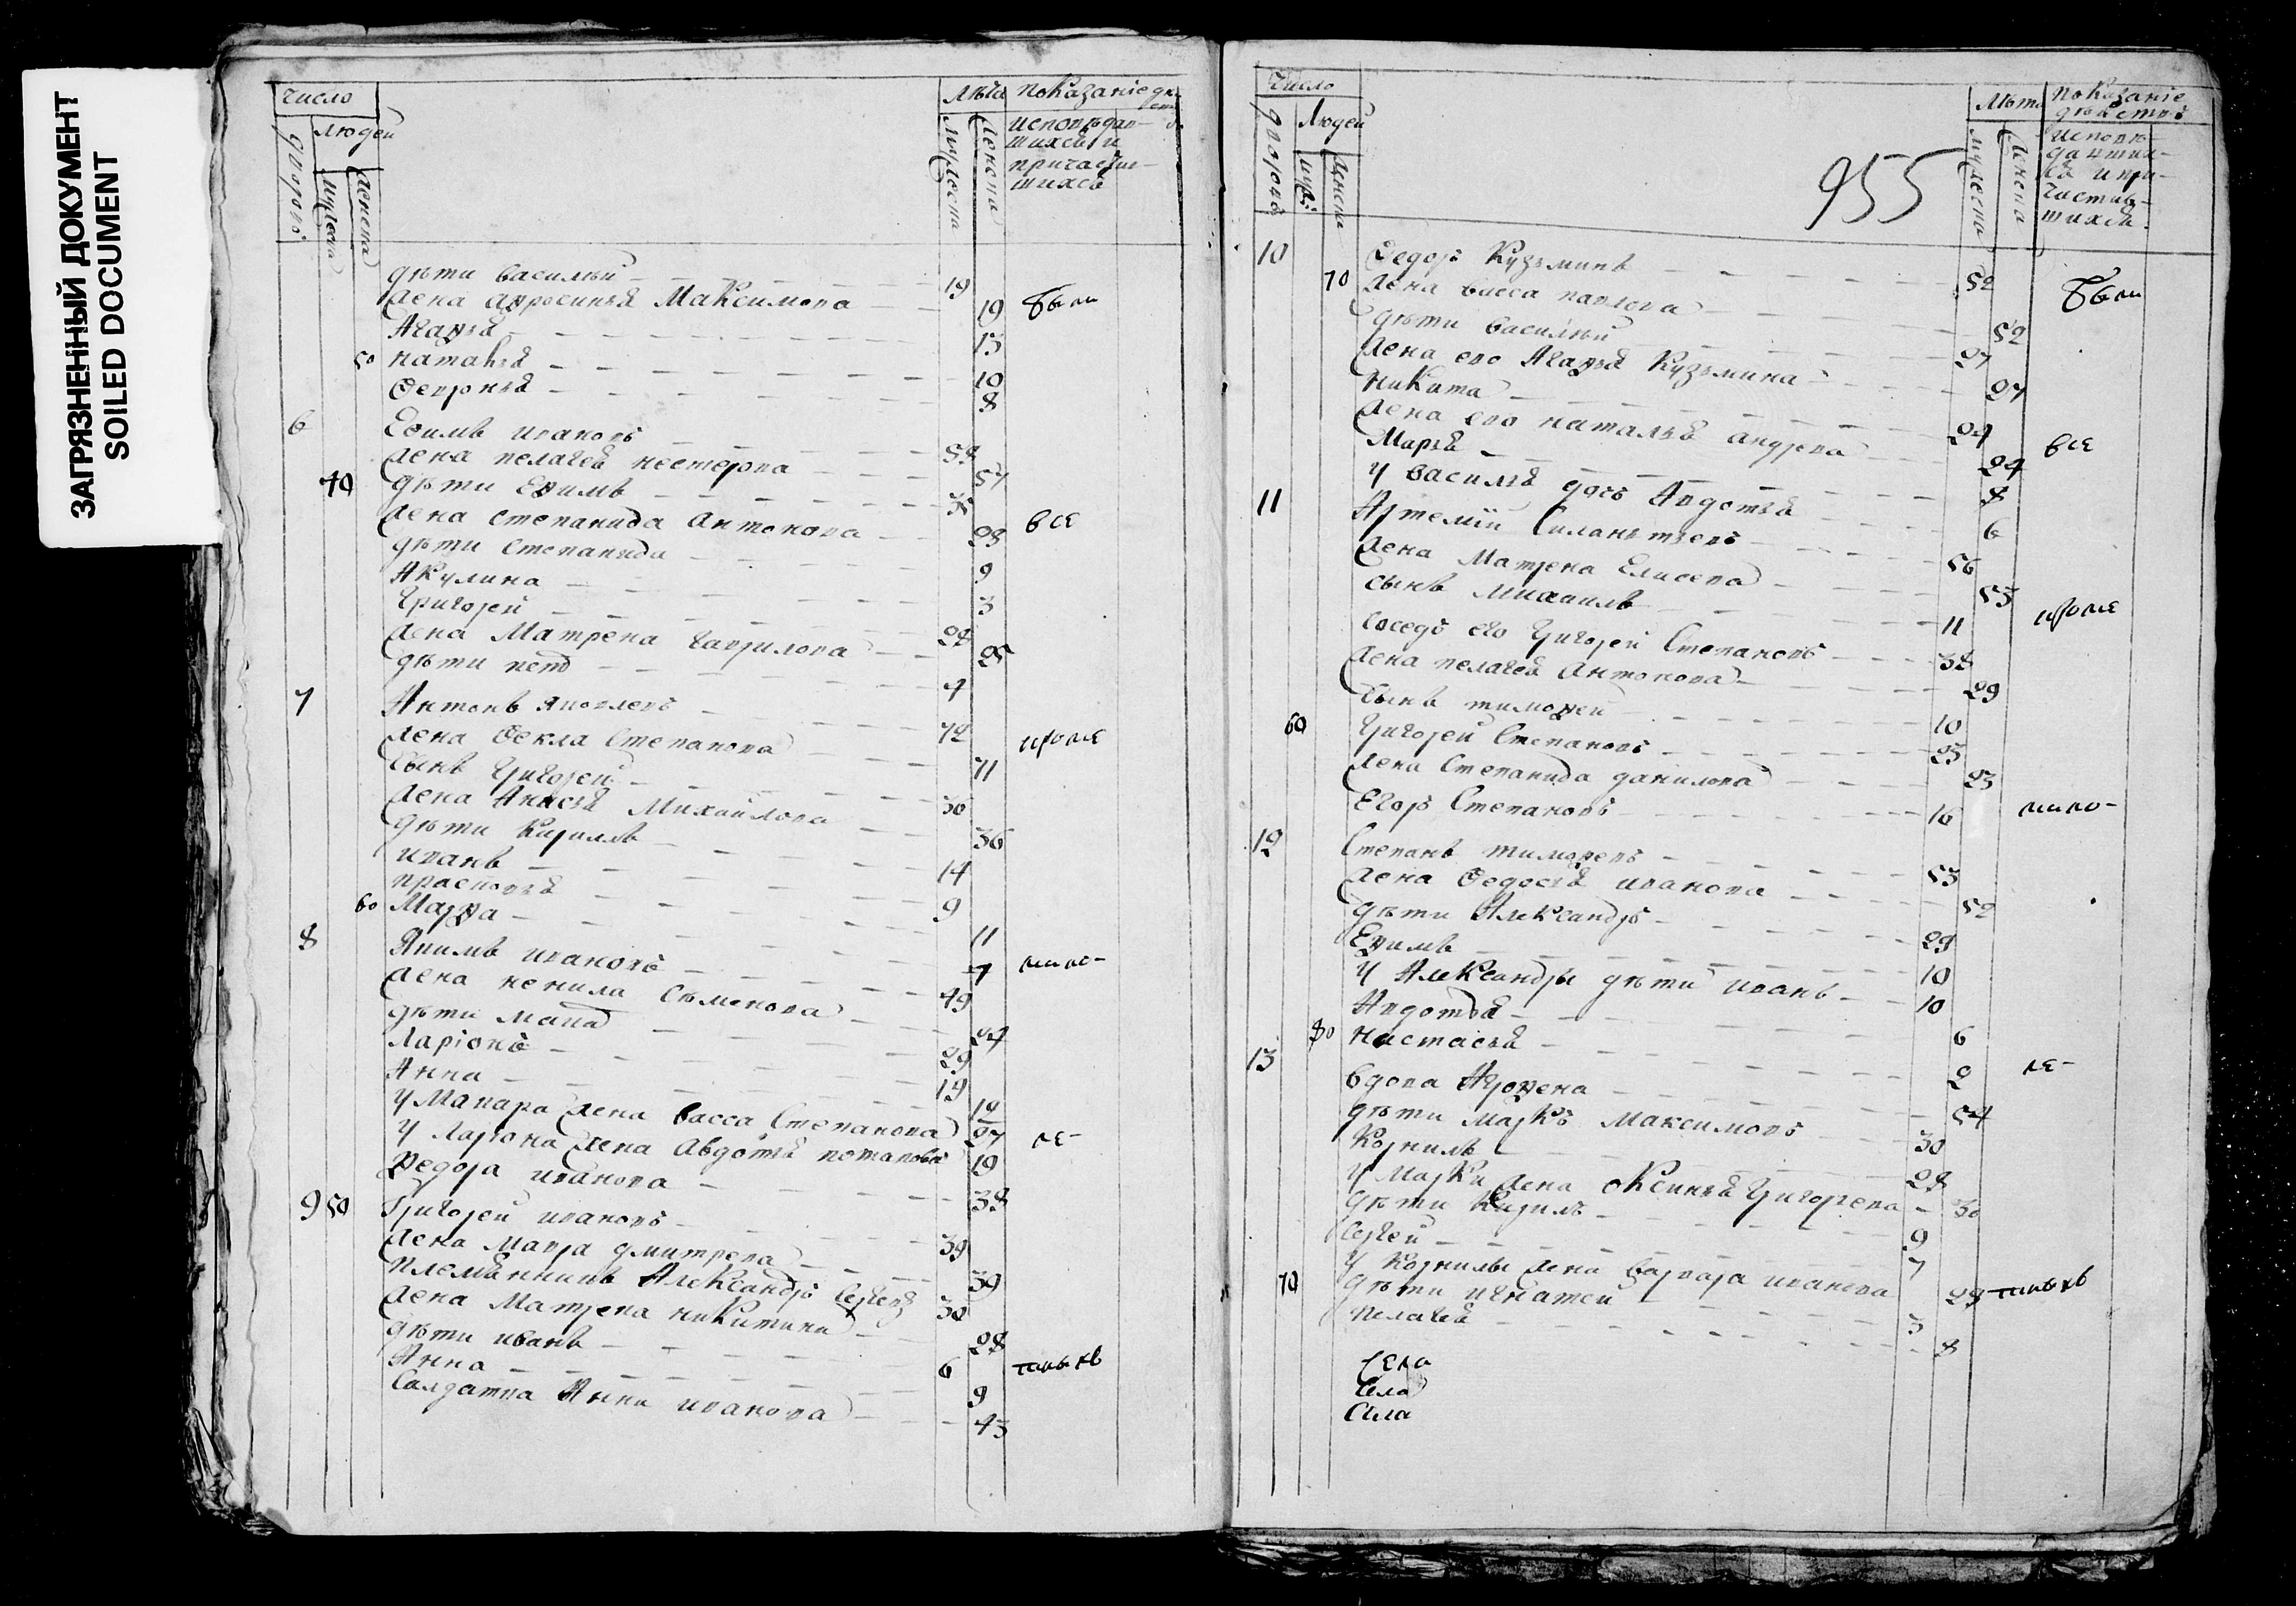 ЗАГРЯЗНЕННЫЙ ДОКУМЕНТ
SOILED DOCUMENT
число
людей
дворовъ
мужеска
женска
лѣта
мужеска
женска
показаніе
исповѣдав-
шихся и
причастив-
шихся
дѣти василий 19
жена афросинья Максимова 19 были
Агафья 13
50 наталья 10
Февронья 8
6 Ефимъ ивановъ 58
жена пелагея нестерова 57
40 дѣти Ефимъ 35
жена степанида антонова 28 все
дѣти степанида 9
Акулина 3
Григорей 28
жена Матрена гаврилова 25
дѣти петр 4
7 Антонъ яковлевъ 72
жена Фекла Степанова 71 кроме
сынъ Григорей 30
жена Анисья Михайлова 36
дѣти Кирилъ 14
иванъ 9
прасковья 11
60 Марфа 7
8 Якимъ ивановъ 49 мало-
жена ненила Сѣменова 47
дѣти Макар 29
Ларіонъ 19
Анна 12
У Макара жена васса Степанова 27
У Ларіона жена Авдотья потапова 19 ле-
Федора иванова 38
9 50 Григорей ивановъ 39
жена Мавра дмитрева 39
племянникъ Александръ Сергевъ 30
жена Матрена никитина 28
дѣти иванъ 6
Анна 9 тныхъ
Салдатка Анна иванова 43
число
людей
дворовъ
муж:
женска
955
лѣта
мужеска
женска
показаніе
дѣйствъ
исповѣ-
давших-
ся и при-
частив-
шихся
10 Федоръ Кузьминъ 52
70 жена васса павлова 52 были
дѣти василий 27
жена его Агафья Кузьмина 27
никита 24
жена его наталья андрева 24 все
Марья 8
У василья дочь Авдотья 6
11 Артемій Силантьевъ 56
жена Матрена Елисева 53
сынъ михаилъ 11
соседъ его Григорей Степановъ 38 кроме
жена пелагея антонова 29
сынъ тимофей 10
60 Григорей Степановъ 25
жена Степанида данилова 23
Егоръ Степановъ 16 мало-
12 Степанъ тимофевъ 53
жена Федосья иванова 52
дѣти Александръ 29
Ефимъ 10
У Александры дѣти иванъ 10
Авдотья 6
80 настасья 2
13 вдова Афрофена 54 ле-
дѣти Марко Максимовъ 30
Корнилъ 28
У Марки жена оксинья Григорева 30
дѣти Кирилъ 9
Сергей 7
У Корнилы жена варвара иванова 29 тныхъ
70 дѣти игнатей 3
пелагея 8
Села
Села
Села